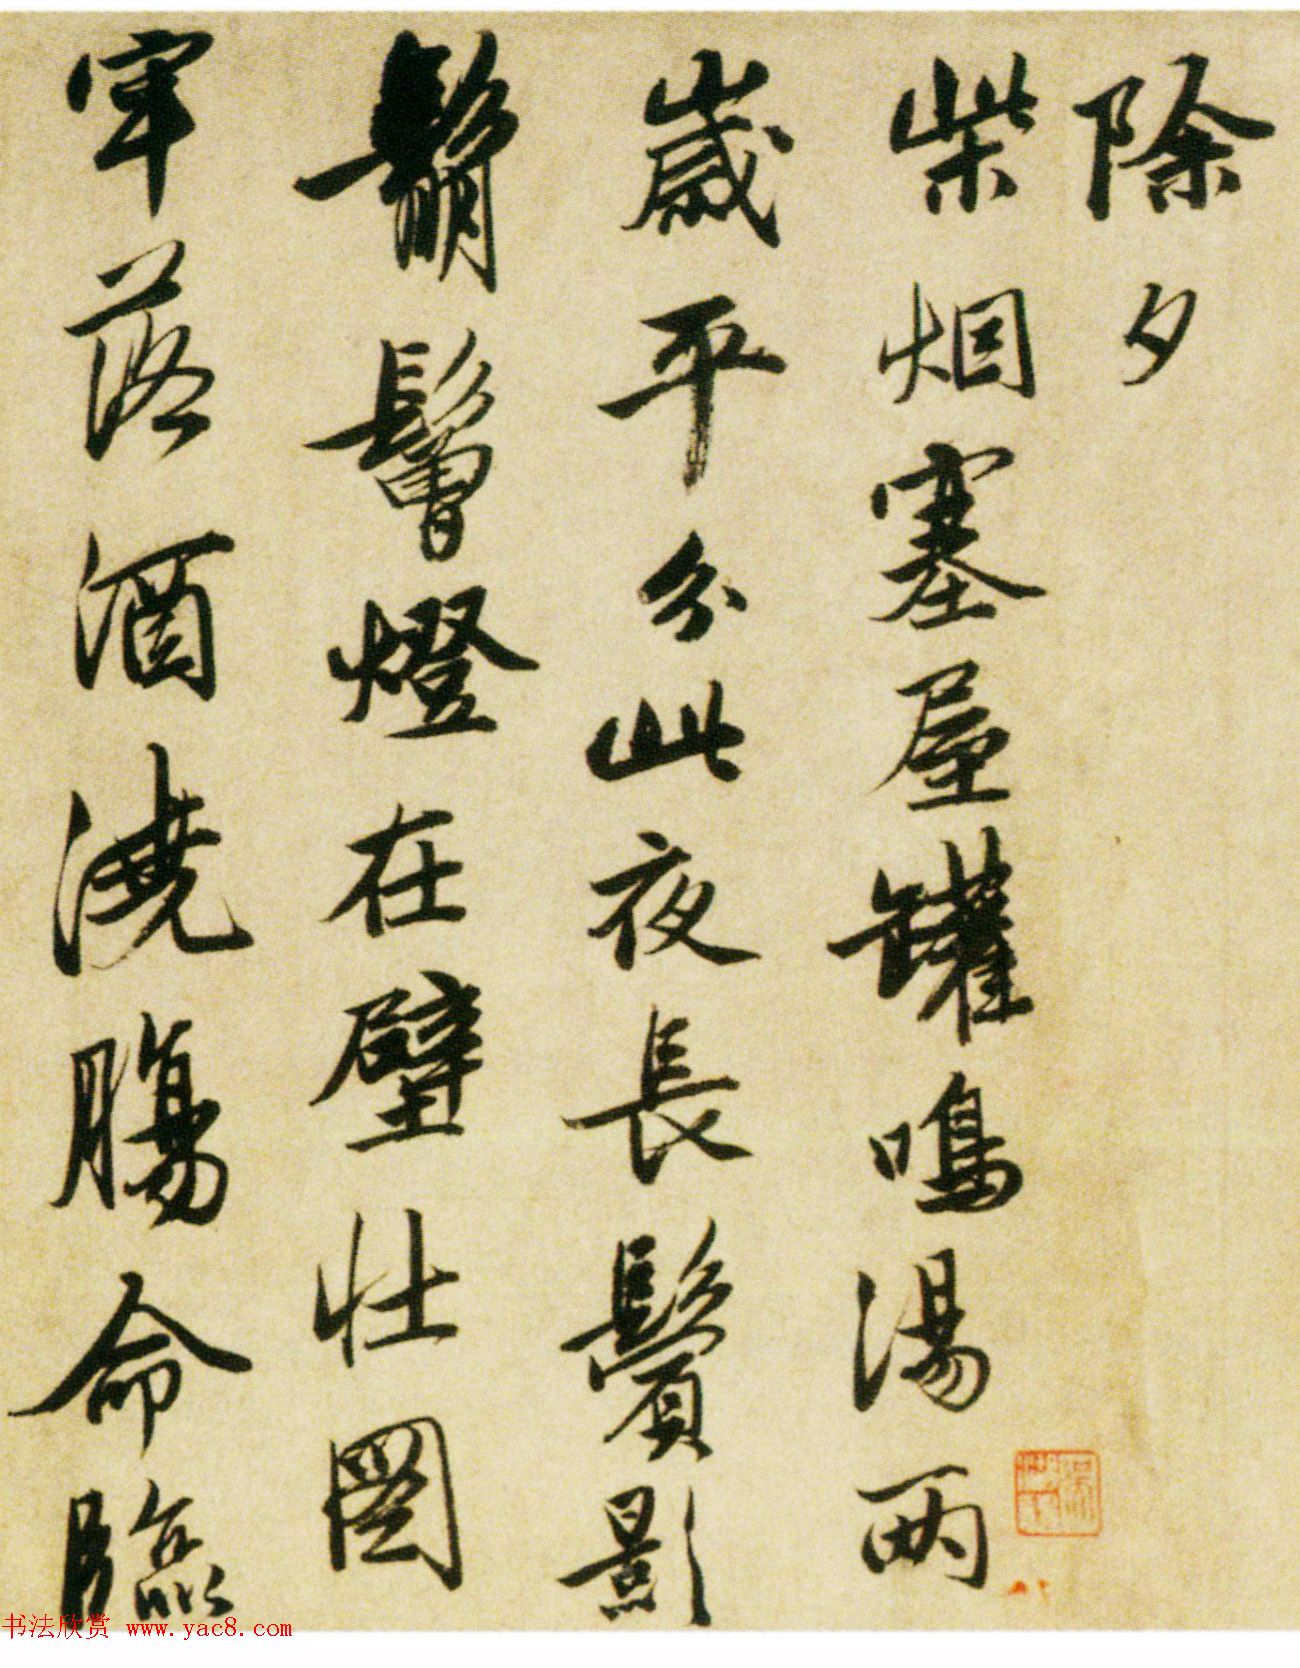 除夕
柴烟塞屋罐鸣湯两
歲平分此夜長鬢影
鬅鬙燈在壁壮圖
牢落酒澆腸命臨
书法欣赏 www.yac8.com